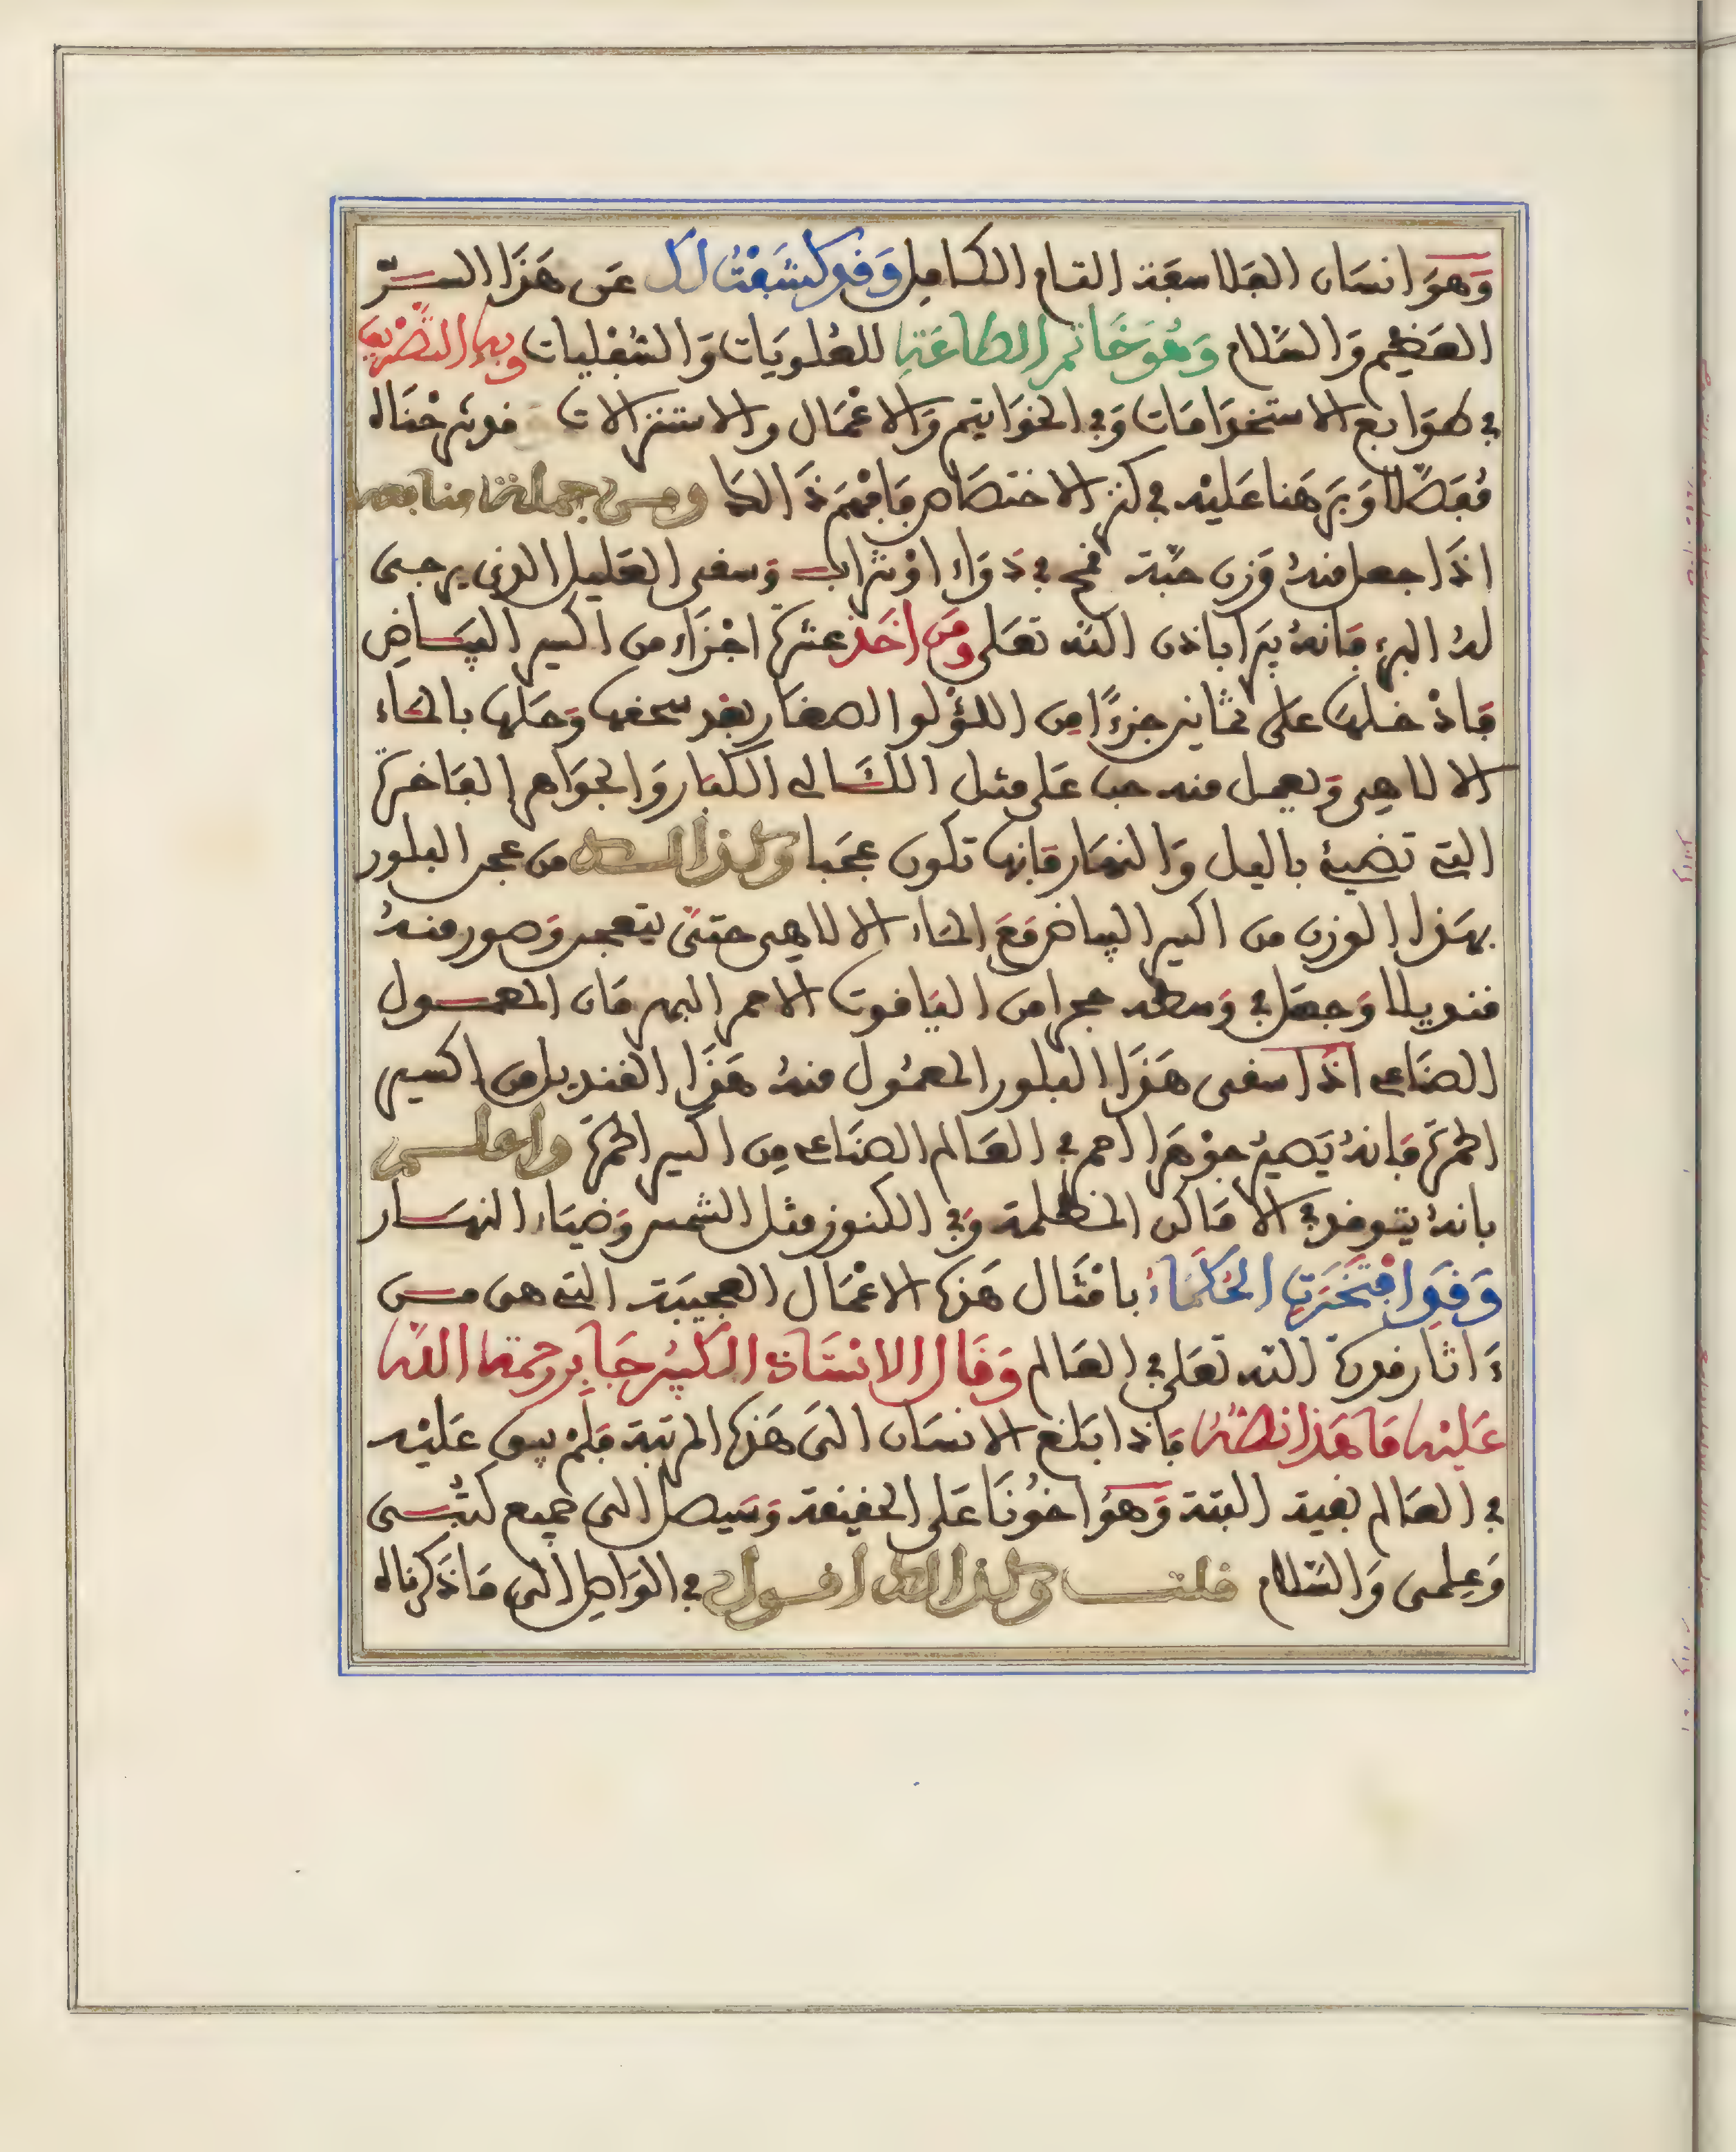 وَهوَ انسَان الفلاسفة التام الكامل وَقد كشَفْتُ لك عَن هَذَا السـرّ
العَظيم وَالسَّلام وَهُوَ خَاتم الطاعَةِ للعُلويَات وَالسُّفليات وبه التصْريف
في طوَابع الاستخدَامَات وَفي الخوَاتيم وَالاعْمَال والاستنزالات قد شرحْنَاه
مُفصَّلا وَبَرهَنا عَليْه في كنز الاختصَاص فَافهَم ذَالكَ ومن جملة منافعه
اذَا جعل منهُ وَزن حَبّة قمح في دَوَاء اوْ شَراب وَسقى العَليل الذي يرجى
لهُ البرء فانهُ يَبرَا باذن الله تعَلى وَمَن اخَذ عشرة اجْزَاء من اكسير البيَاض
فَادْخلهَا على ثمانين جزءًا مِن اللؤلؤ الصغار بعْد سحقهَا وَحَلهَا بالمَاء
الالاهي وَيعمل منه حب عَلى مثل اللئَالي الكبار وَالجوَاهر الفَاخرة
التي تضيئ باليل وَالنهَار فَانها تكون عجَبا وَكذالك من عجن البلور
بهَذا الوزن من اكسير البياض مَعَ المَاء الالاهي حتىَ يتعجن وَصور منهُ
قنديلا وَجعَل في وَسطه حجرا من اليَاقوت الاحمر البهرمَان المعمـول
الصنَاعي اذَا سقى هَذَا البلور المعمُول منهُ هَذَا القنديل من اكسير
الحمرَة فَانهُ يَصيرُ جوْهَرا احمر في العَالم الصنَاعي مِن اكسير الحمرَة واعلـم
بانهُ يتوقد في الامَاكن المظلمة وَفي الكنوز مثل الشمس وَضيَاء النهَـار
وَقدِ افْتَخَرَتِ الحُكَمَاءُ بامْثَال هَذه الاعْمَال العجيبَة التي هى مـن
ءَاثار قدرة الله تعَلى في العَالم وَقَال الاسْتَاذ الكبيْر جَابر رحمة الله
عَليْه مَا هَذا نصُّهُ فَاذا بَلغ الانسَان الىَ هَذه المرتبة فَلمْ يبق عَليْه
في العَالم بقية البتة وَهوَ اخوُنَا عَلى الحقيقة وَسَيصل الى جميع كتُبـى
وَعِلمى وَالسَّلام قلتُ وَكذالك اقـول في الوَاصل الى مَا ذَكرنَاه